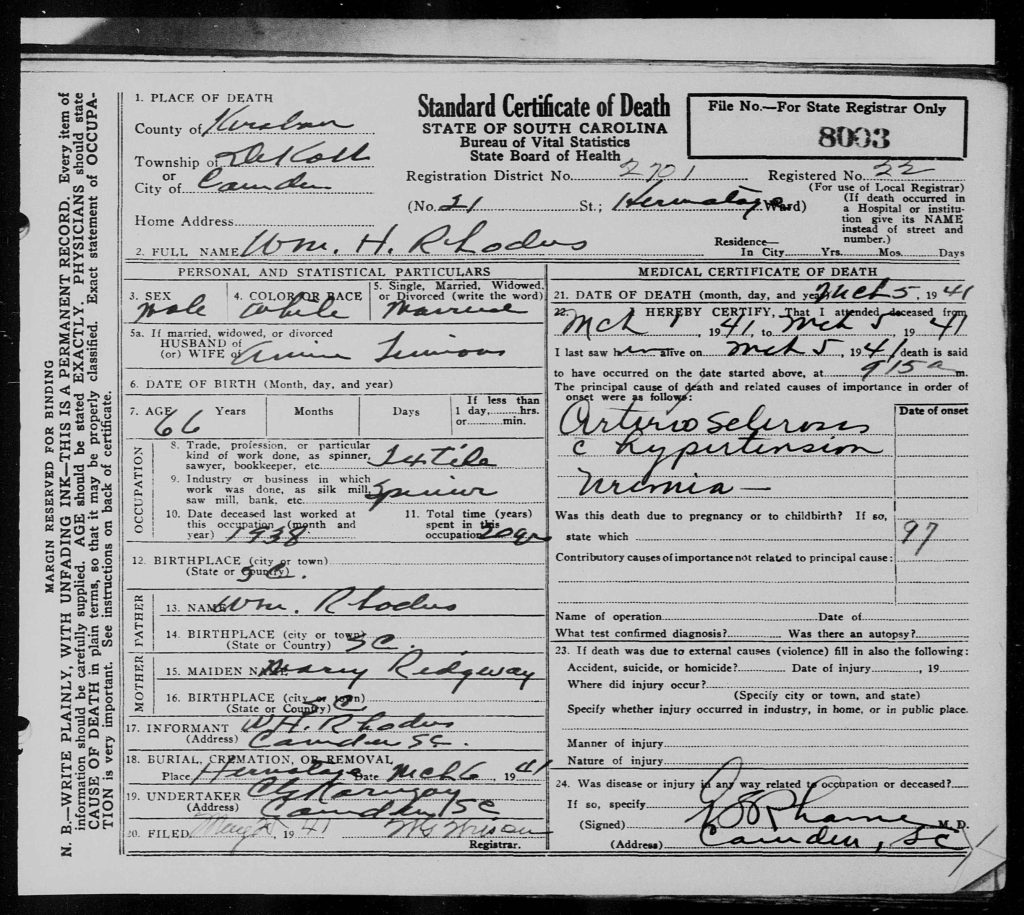 N. B.—WRITE PLAINLY, WITH UNFADING INK—THIS IS A PERMANENT RECORD. Every item of
information should be carefully supplied. AGE should be stated EXACTLY. PHYSICIANS should state
CAUSE OF DEATH in plain terms, so that it may be properly classified. Exact statement of OCCUPA-
TION is very important. See instructions on back of certificate.
MARGIN RESERVED FOR BINDING
Standard Certificate of Death
STATE OF SOUTH CAROLINA
Bureau of Vital Statistics
State Board of Health
File No.—For State Registrar Only
8003
1. PLACE OF DEATH
County of Kershaw
Township of DeKalb
or
City of Camden
Registration District No. 2701
Registered No. 22
(For use of Local Registrar)
(No. 21 St.; Hermitage Ward)
(If death occurred in
a Hospital or institu-
tion give its NAME
instead of street and
number.)
Home Address
2. FULL NAME Wm. H. Rhodes
Residence—
In City Yrs. Mos. Days
PERSONAL AND STATISTICAL PARTICULARS
3. SEX
Male
4. COLOR OR RACE
White
5. Single, Married, Widowed,
or Divorced (write the word)
Married
5a. If married, widowed, or divorced
HUSBAND of
(or) WIFE of
6. DATE OF BIRTH (Month, day, and year)
7. AGE Years Months Days
66
If less than
1 day, hrs.
or min.
OCCUPATION
8. Trade, profession, or particular
kind of work done, as spinner,
sawyer, bookkeeper, etc. Textile
9. Industry or business in which
work was done, as silk mill,
saw mill, bank, etc. Spinner
10. Date deceased last worked at
this occupation (month and
year) 1938
11. Total time (years)
spent in this
occupation 20 yr
12. BIRTHPLACE (city or town)
(State or Country) S C.
FATHER
13. NAME Wm. Rhodes
14. BIRTHPLACE (city or town)
(State or Country) SC.
MOTHER
15. MAIDEN NAME Mary Ridgeway
16. BIRTHPLACE (city or town)
(State or Country) SC.
17. INFORMANT W.H. Rhodes
(Address) Camden SC.
18. BURIAL, CREMATION, OR REMOVAL
Place Hermitage Date Mch 6, 1941
19. UNDERTAKER
(Address) Camden, SC
20. FILED 1941
Registrar.
MEDICAL CERTIFICATE OF DEATH
21. DATE OF DEATH (month, day, and year) Mch 5, 1941
22. I HEREBY CERTIFY, That I attended deceased from
Mch 1, 1941, to Mch 5, 1941
I last saw him alive on Mch 5, 1941 death is said
to have occurred on the date started above, at 9 15 a m.
The principal cause of death and related causes of importance in order of
onset were as follows:
Date of onset
Arterio Sclerosis
c hypertension
Uremia —
Was this death due to pregnancy or to childbirth? If so,
state which
97
Contributory causes of importance not related to principal cause:
Name of operation Date of
What test confirmed diagnosis? Was there an autopsy?
23. If death was due to external causes (violence) fill in also the following:
Accident, suicide, or homicide? Date of injury , 19
Where did injury occur?
(Specify city or town, and state)
Specify whether injury occurred in industry, in home, or in public place.
Manner of injury
Nature of injury
24. Was disease or injury in any way related to occupation of deceased?
If so, specify
(Signed) Rhame M. D.
(Address) Camden, SC